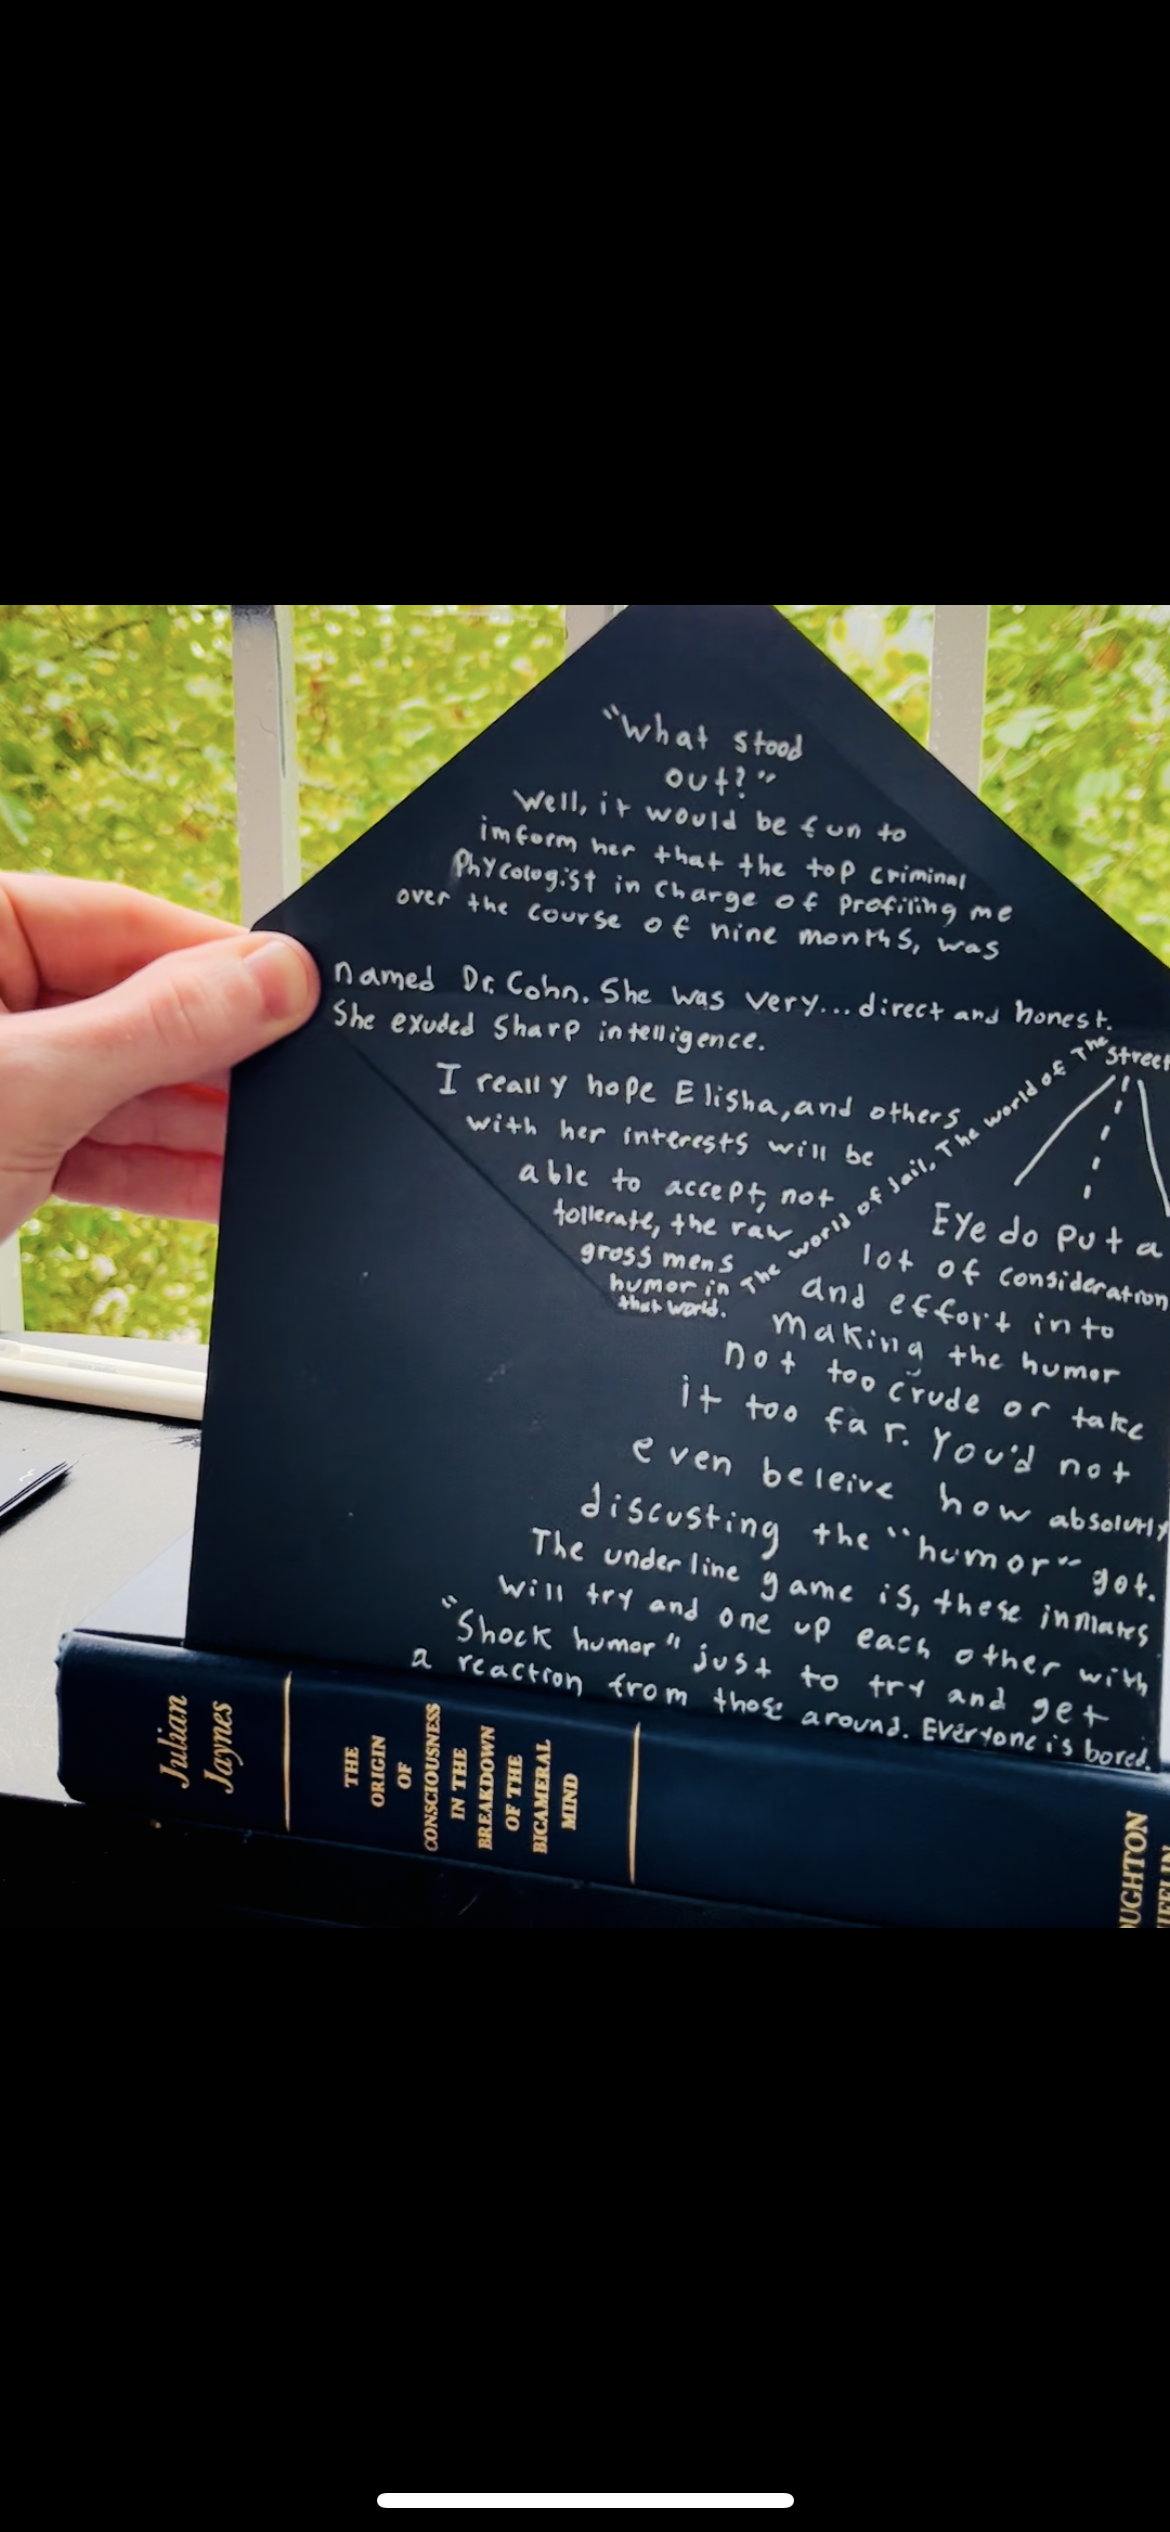 "What stood
out?"
Well, it would be fun to
imform her that the top criminal
Phycologist in charge of profiling me
over the course of nine months, was
named Dr. Cohn. She was very... direct and honest.
She exuded sharp intelligence.
I really hope Elisha, and others
with her interests will be
able to accept, not
tollerate, the raw
gross mens
humor in
that world.
The world of Jail. The world of The
Street
Eye do put a
lot of consideration
and effort into
making the humor
not too crude or take
it too far. You'd not
even beleive how absolutly
discusting the "humor" got.
The under line game is, these inmates
will try and one up each other with
"Shock humor" just to try and get
a reaction from those around. Everyone is bored.
Julian
Jaynes
THE
ORIGIN
OF
CONSCIOUSNESS
IN THE
BREAKDOWN
OF THE
BICAMERAL
MIND
OUGHTON